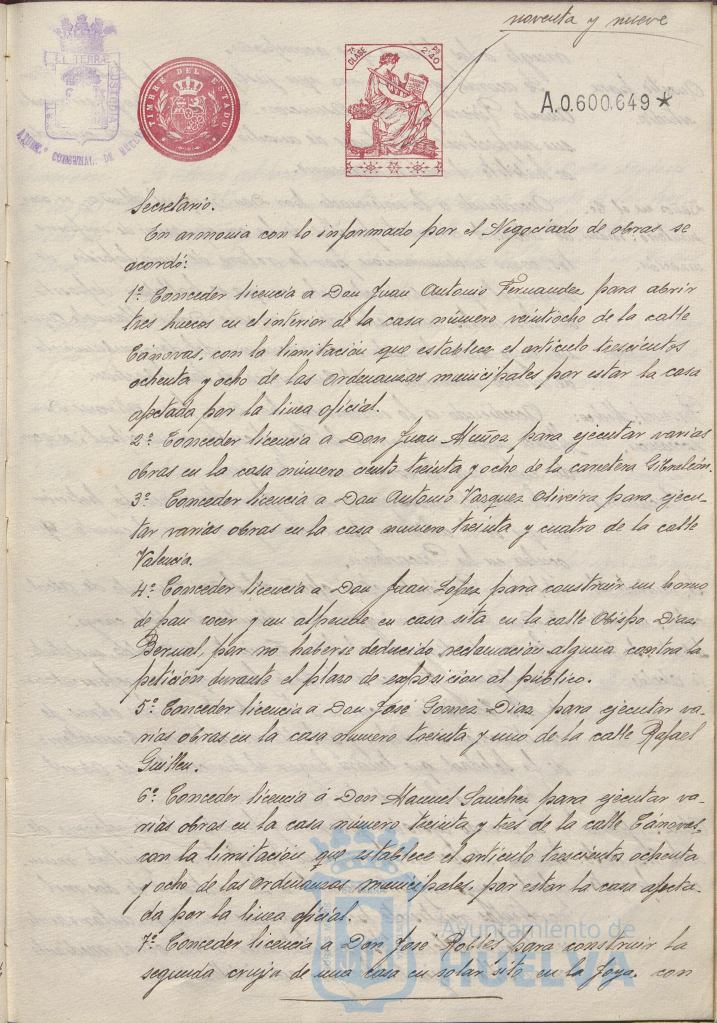 noventa y nueve
EL TERRÆ CUSTODIA
ARCHIVO MUNICIPAL DE HUELVA
TIMBRE DEL ESTADO
7ª CLASE
Ps 2'40
A.0.600.649 *
Secretario.
En armonia con lo informado por el Negociado de obras se
acordó:
1º Conceder licencia a Don Juan Antonio Fernandez para abrir
tres huecos en el interior de la casa número veintiocho de la calle
Cánovas, con la limitación que establece el artículo trescientos
ochenta y ocho de las Ordenanzas municipales por estar la casa
afectada por la linea oficial.
2º Conceder licencia a Don Juan Muñoz para ejecutar varias
obras en la casa número ciento treinta y ocho de la carretera Gibraleón.
3º Conceder licencia a Don Antonio Vazquez Oliveira para ejecu-
tar varias obras en la casa numero treinta y cuatro de la calle
Valencia.
4º Conceder licencia a Don Juan Lopez para construir un horno
de pan cocer y un alpende en casa sita en la calle Obispo Diaz
Bernal, por no haberse deducido reclamación alguna contra la
petición durante el plazo de exposición al público.
5º Conceder licencia a Don José Gomez Diaz para ejecutar va-
rias obras en la casa numero treinta y uno de la calle Rafael
Guillen.
6º Conceder licencia á Don Manuel Sanchez para ejecutar va-
rias obras en la casa número treinta y tres de la calle Cánovas
con la limitación que establece el articulo trescientos ochenta
y ocho de las Ordenanzas municipales, por estar la casa afecta-
da por la linea oficial.
7º Conceder licencia a Don José Robles para construir la
segunda crujia de una casa en solar sito en la Joya, con
Ayuntamiento de
HUELVA